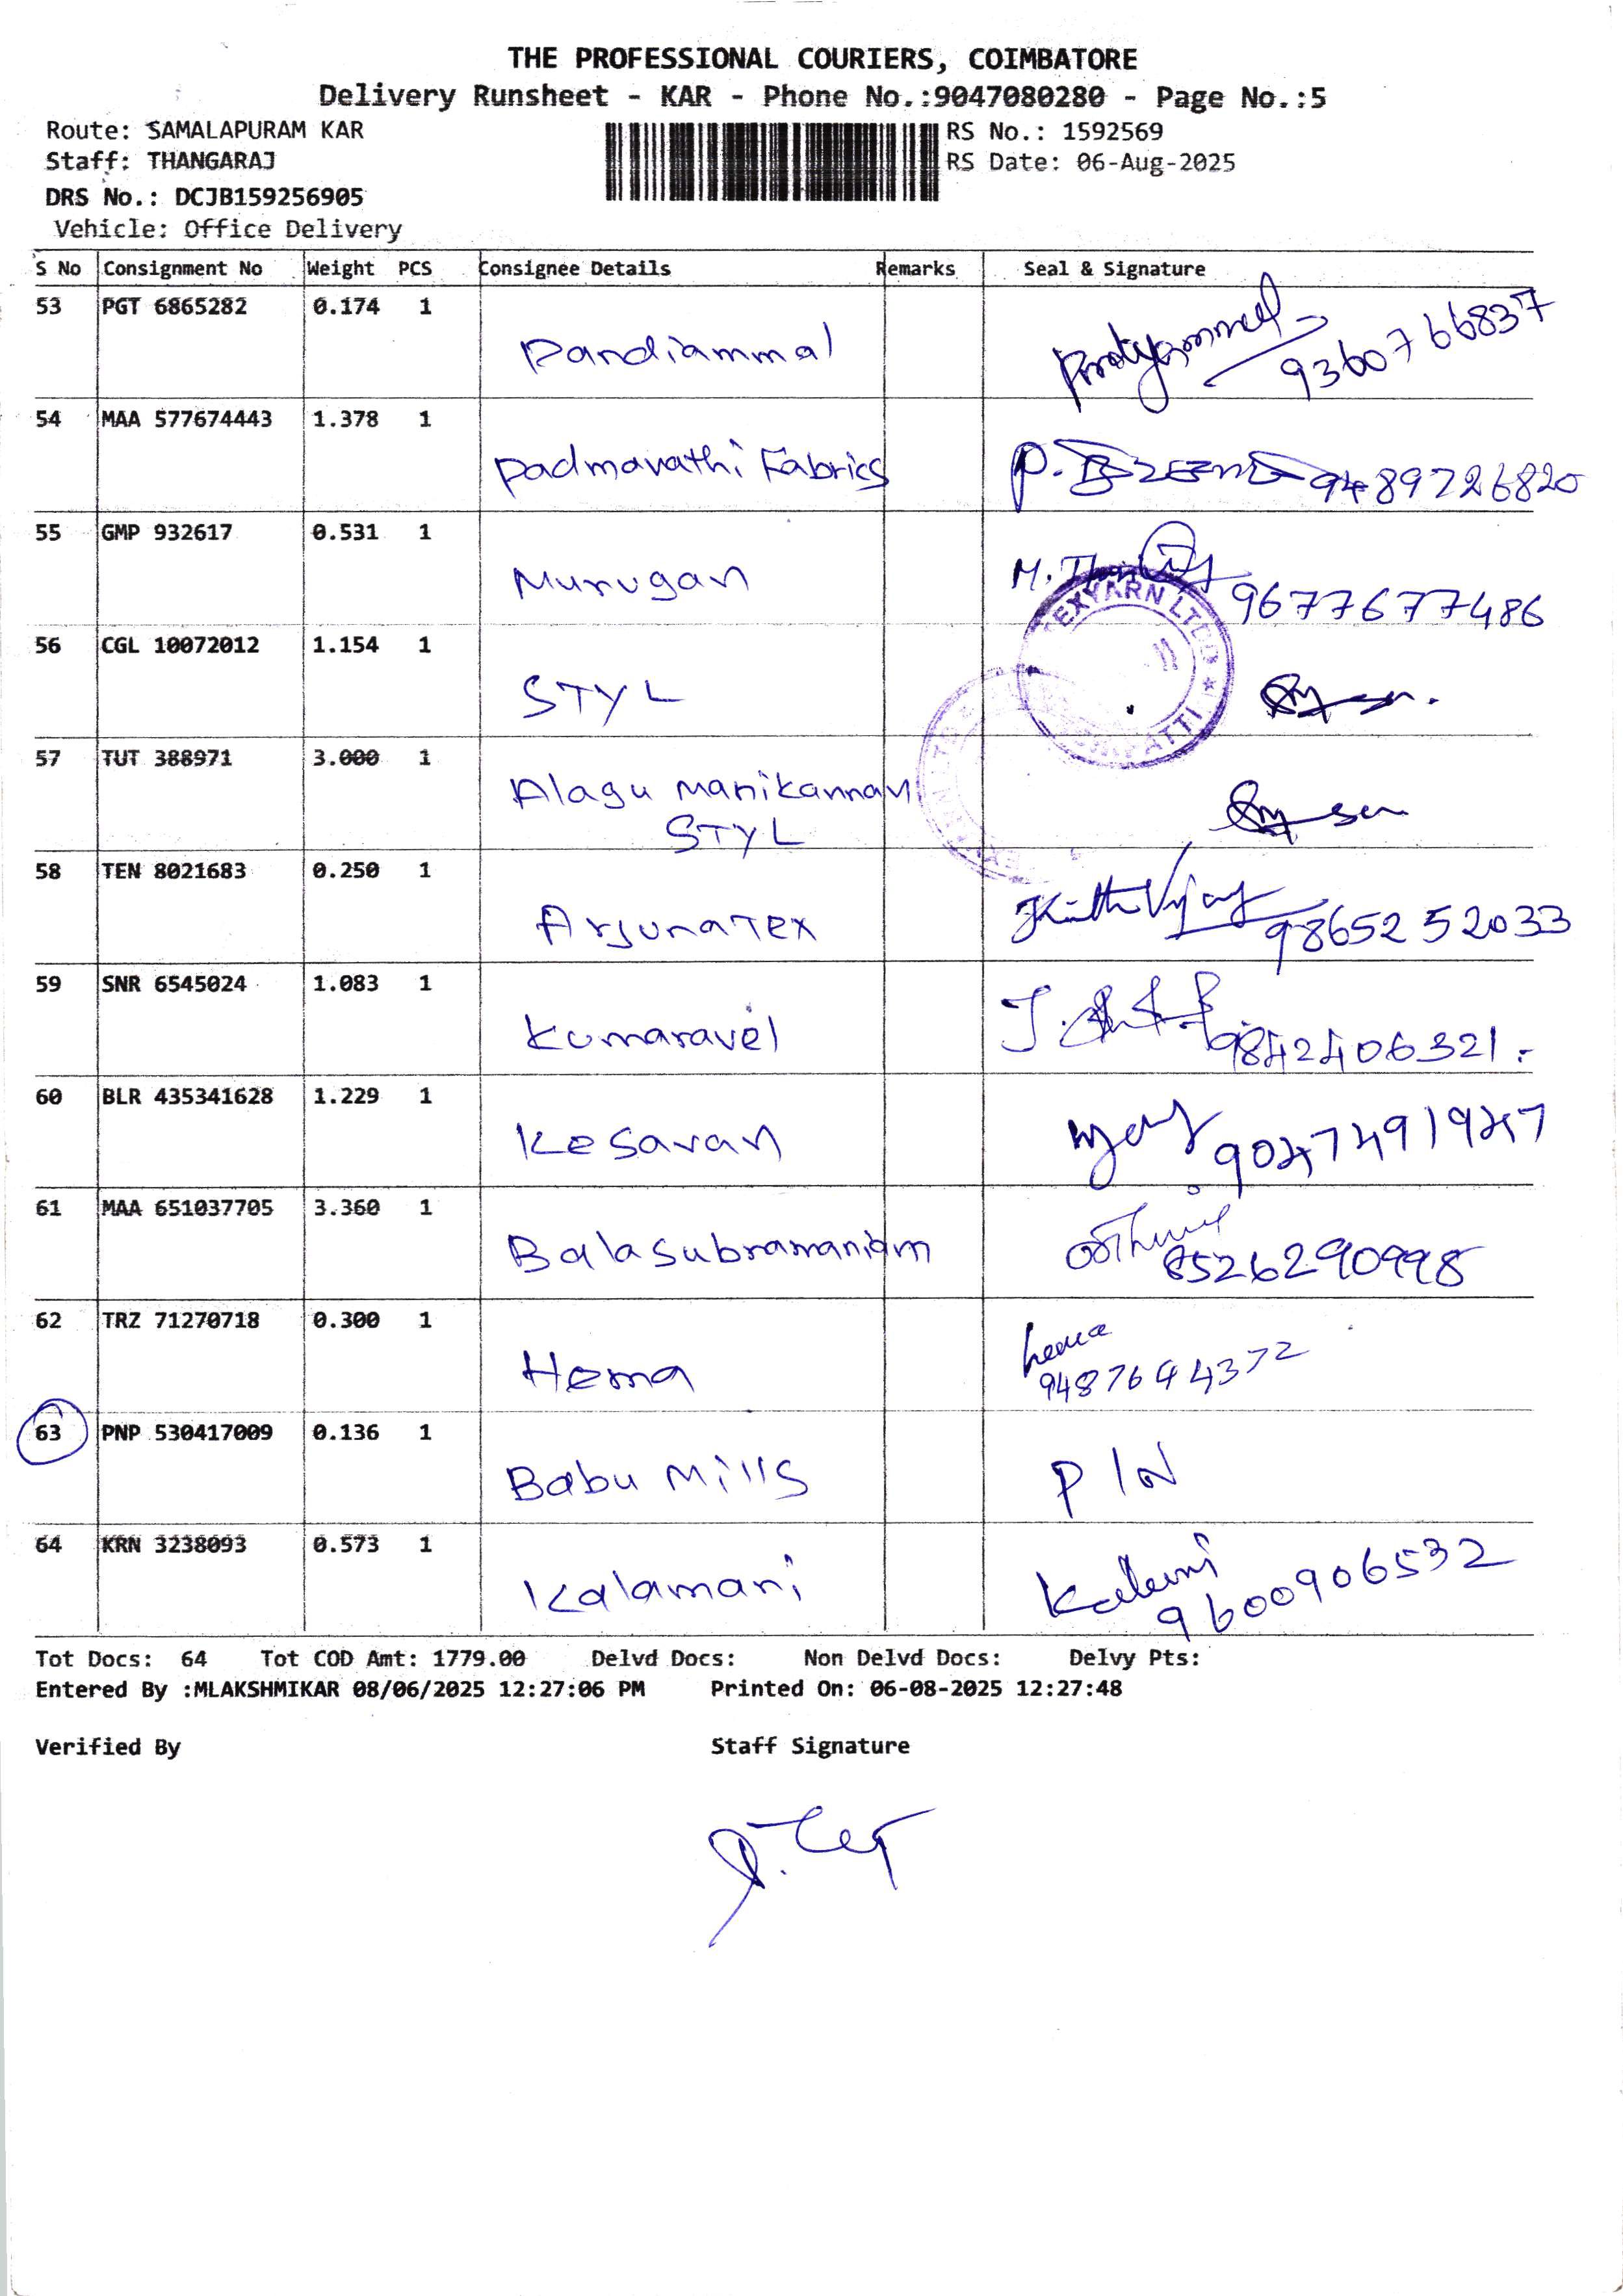 THE PROFESSIONAL COURIERS, COIMBATORE
Delivery Runsheet - KAR - Phone No.:9047080280 - Page No.:5
Route: SAMALAPURAM KAR
RS No.: 1592569
Staff: THANGARAJ
RS Date: 06-Aug-2025
DRS No.: DCJB159256905
Vehicle: Office Delivery
S No Consignment No Weight PCS Consignee Details Remarks Seal & Signature
53 PGT 6865282 0.174 1
Pandiammal 9360766837
54 MAA 577674443 1.378 1
Padmavathi Fabrics P. 9489726820
55 GMP 932617 0.531 1
Murugan M. 9677677486
TEXYARN LTD
56 CGL 10072012 1.154 1
STYL
57 TUT 388971 3.000 1
Alagu Manikannan
STYL
58 TEN 8021683 0.250 1
Arjuna TEX 98652 52033
59 SNR 6545024 1.083 1
Kumaravel J. 9842406321.
60 BLR 435341628 1.229 1
Kesavan 9047491947
61 MAA 651037705 3.360 1
Balasubramaniam 8526290998
62 TRZ 71270718 0.300 1
Hema hema
9487644372
63 PNP 530417009 0.136 1
Babu Mills P/N
64 KRN 3238093 0.573 1
Kalamani Kalamani
9600906532
Tot Docs: 64 Tot COD Amt: 1779.00 Delvd Docs: Non Delvd Docs: Delvy Pts:
Entered By :MLAKSHMIKAR 08/06/2025 12:27:06 PM Printed On: 06-08-2025 12:27:48
Verified By Staff Signature